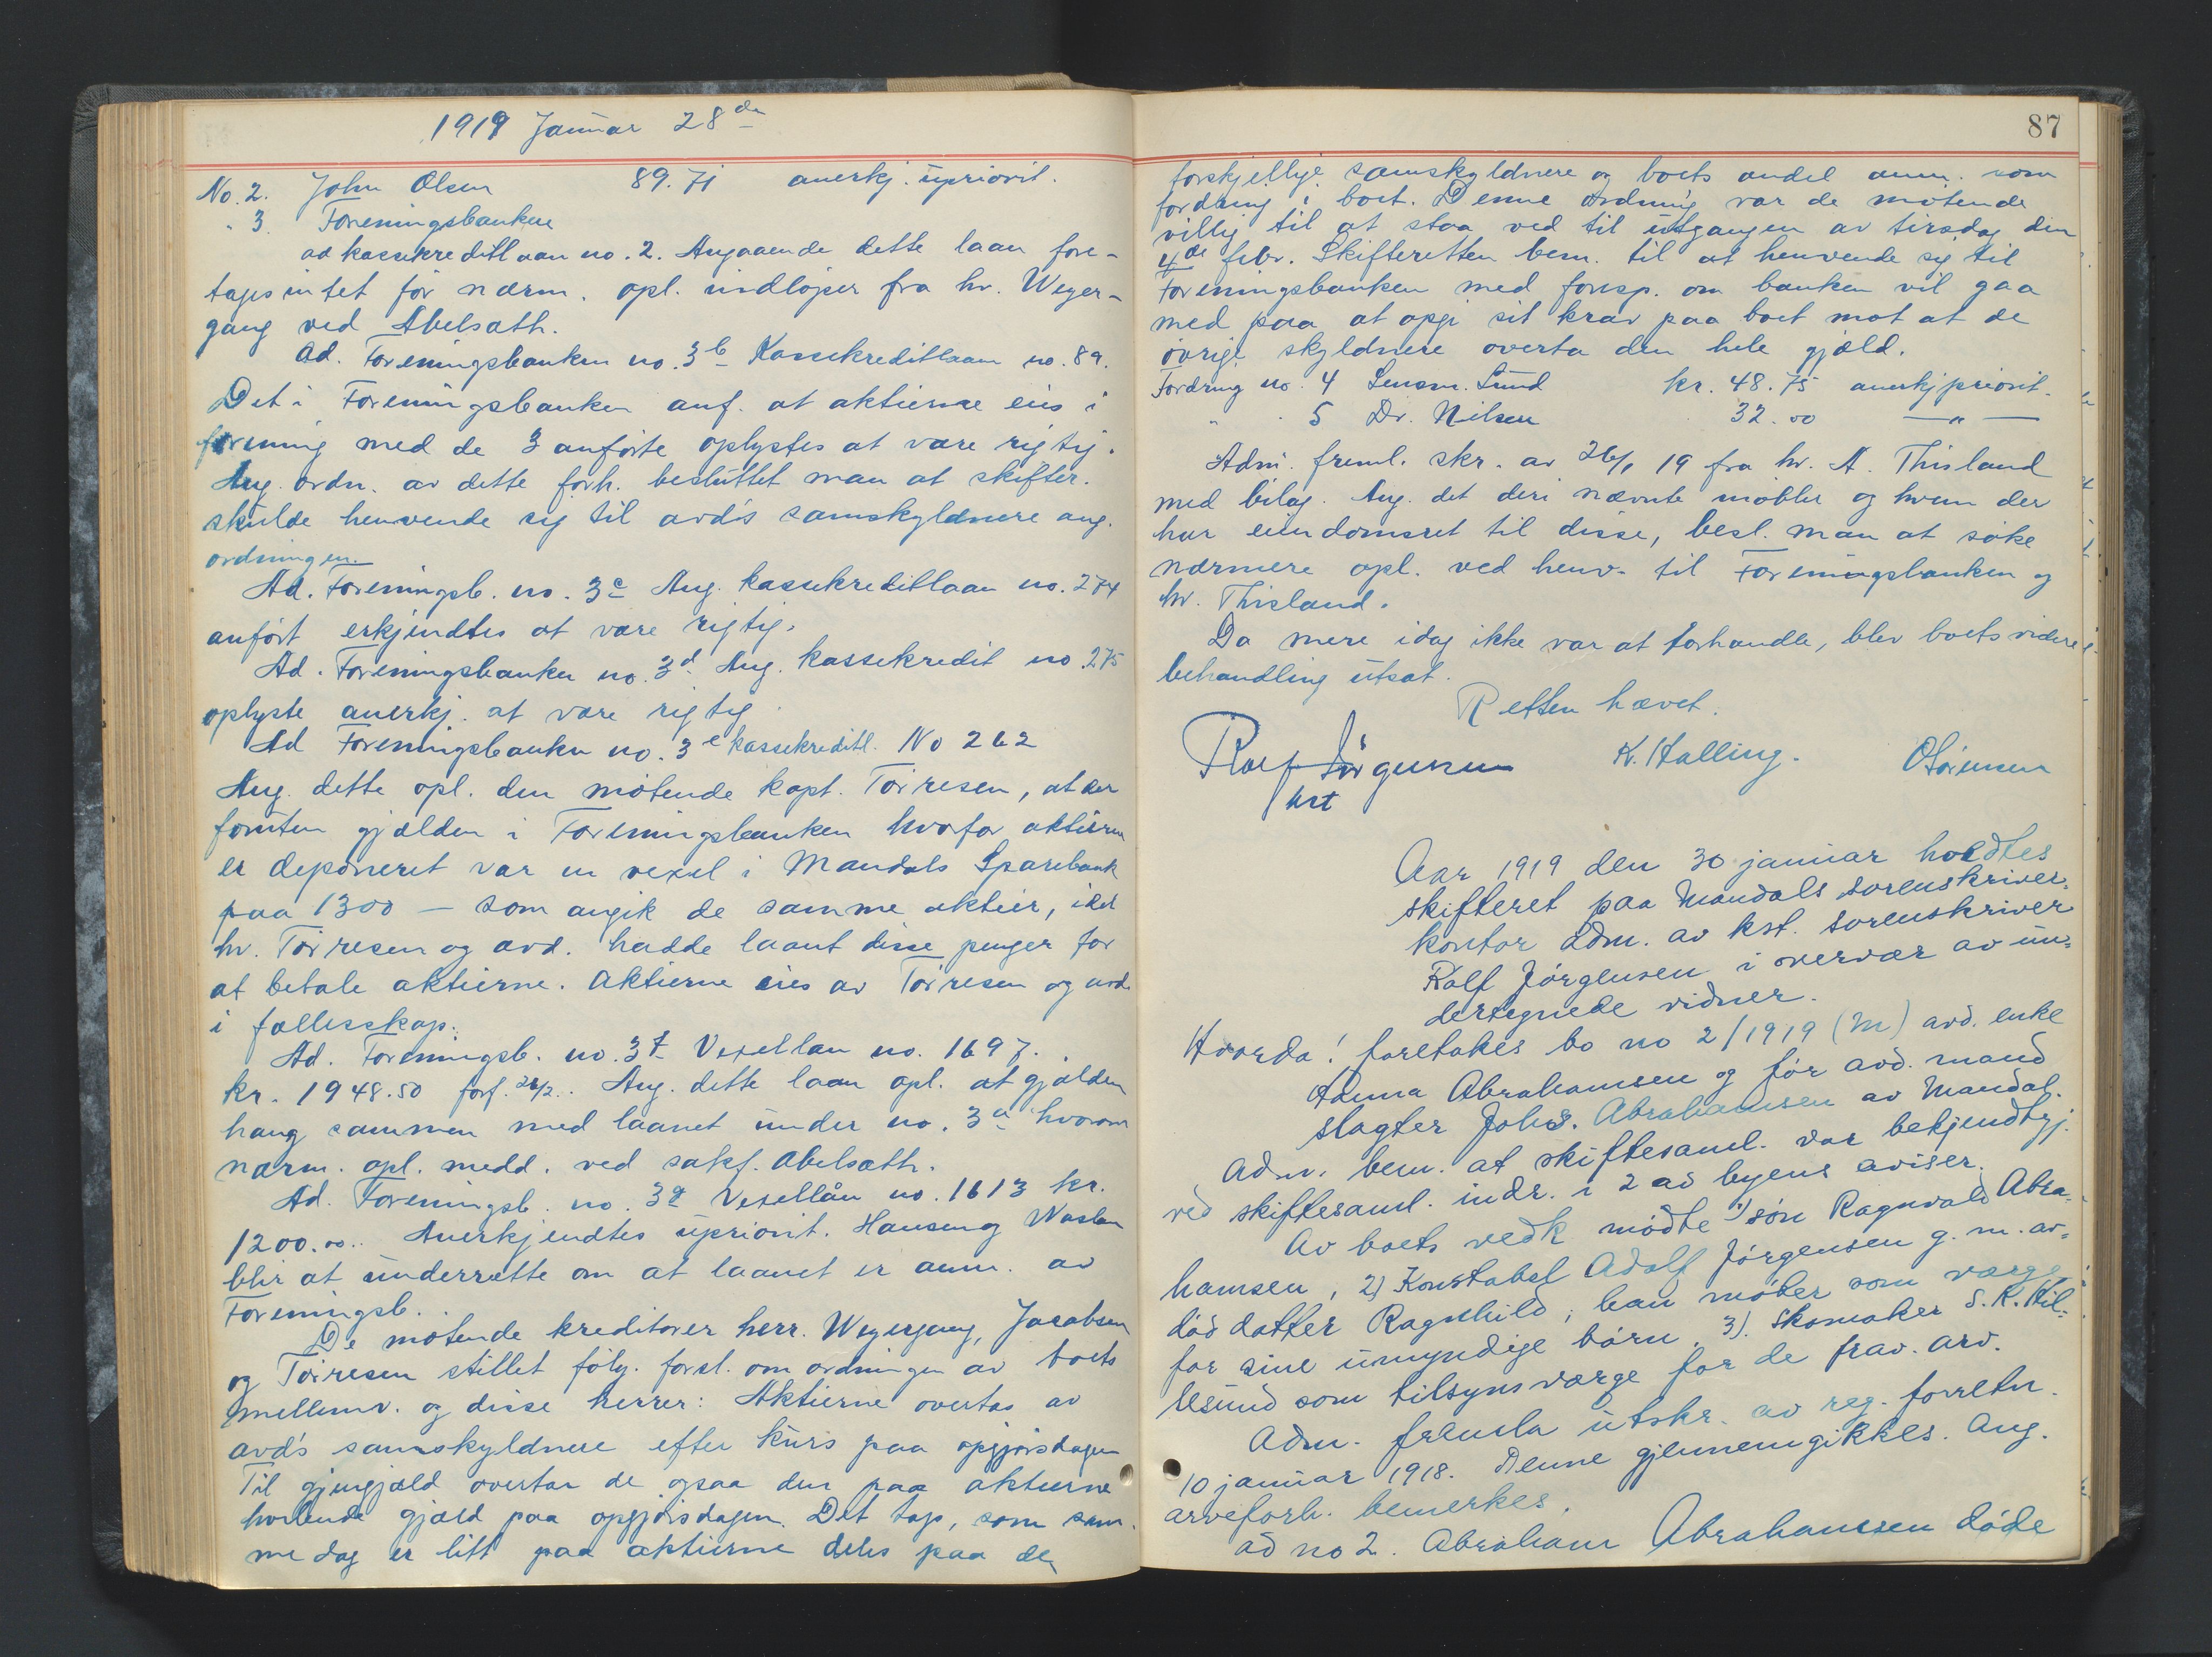 1919 Januar 28de
No. 2. John Olsen 89.71 anerkj. upriorit.
" 3. Foreningsbanken
ad kassekreditlaan no. 2. Angaaende dette laan fore-
tages intet før nærm. opl. indløper fra hr. Weyer-
gang ved Abelsæth.
Ad. Foreningsbanken no. 3b Kassekreditlaan no. 89.
Det i Foreningsbanken anf. at aktierne eies i
forening med de 3 anførte oplystes at være rigtig.
Ang. ordn. av dette forh. besluttet man at skifter.
skulde henvende sig til avd's samskyldnere ang.
ordningen.
Ad. Foreningsb. no. 3c Ang. kassekreditlaan no. 274
anført erkjendtes at være rigtig.
Ad. Foreningsbanken no. 3d Ang. kassekredit no. 275
oplyste anerkj. at være rigtig.
Ad Foreningsbanken no. 3e kassekreditl. No 262
Ang. dette opl. den møtende kapt. Tørresen, at der
foruten gjælden i Foreningsbanken hvorfor aktierne
er deponeret var en vexel i Mandals Sparebank
paa 1300 — som angik de samme aktier, idet
hr. Tørresen og avd. hadde laant disse penger for
at betale aktierne. Aktierne eies av Tørresen og avd.
i fællesskap.
Ad. Foreningsb. no. 3f Vexellaan no. 1697.
kr. 1948.50 forf. 28/2. Ang. dette laan opl. at gjælden
hang sammen med laanet under no. 3a hvorom
nærm. opl. medd. ved sakf. Abelsæth.
Ad. Foreningsb. no. 3g Vexellån no. 1613 kr.
1200.00. Anerkjendtes upriorit. Hansen og
blir at underrette om at laanet er anm. av
Foreningsb.
De møtende kreditorer herr. Weyergang, Jacobsen
og Tørresen stillet følg. forsl. om ordningen av boets
mellemv. og disse herrer: Aktierne overtas av
avd's samskyldnere efter kurs paa opgjørsdagen
Til gjengjæld overtar de ogsaa den paa aktierne
hvilende gjæld paa opgjørsdagen. Det tap, som sam-
me dag er litt paa aktierne deles paa de
87
forskjellige samskyldnere og boets andel anm. som
fordring i boet. Denne ordning var de møtende
villig til at staa ved til utgangen av tirsdag den
4de febr. Skifteretten bem. til at henvende sig til
Foreningsbanken med foresp. om banken vil gaa
med paa at opgi sit krav paa boet mot at de
øvrige skyldnere overta den hele gjæld.
Fordring no. 4 Lensm. Lund kr. 48.75 anerkj priorit.
" " 5 Dr. Nilsen 32.00 — " —
Adm. freml. skr. av 26/1 19 fra hr. A. Thisland
med bilag. Ang. det deri nævnte møbler og hvem der
har eiendomsret til disse, besl. man at søke
nærmere opl. ved henv. til Foreningsbanken og
hr. Thisland.
Da mere idag ikke var at forhandle, blev boets videre
behandling utsat.
Retten hævet.
Rolf Jørgensen K. Halling. O Sørensen
kst
Aar 1919 den 30 januar holdtes
skifteret paa Mandals sorenskriver-
kontor adm. av kst. sorenskriver
Rolf Jørgensen i overvær av un-
dertegnede vidner.
Hvorda! foretakes bo no 2/1919 (M) avd. enke
Adnna Abrahamsen og før avd. mand
slagter Johs. Abrahamsen av Mandal.
Adm. bem. at skiftesaml. var bekjendtgj.
ved skiftesaml. indr. i 2 av byens aviser.
Av boets vedk mødte 1) søn Ragnvald Abra-
hamsen, 2) Konstabel Adolf Jørgensen g. m. av-
død datter Ragnhild, han møter som værge
for sine umyndige børn, 3). Skomaker S. K. Hil-
lesund som tilsynsværge for de frav. arv.
Adm. fremla utskr. av reg. forretn.
10 januar 1918. Denne gjennemgikkes. Ang.
arveforh. bemerkes.
ad no 2. Abraham Abrahamsen døde